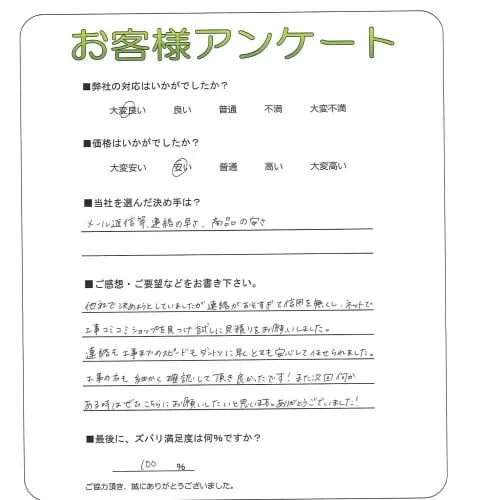 お客様アンケート
■弊社の対応はいかがでしたか？
大変良い 良い 普通 不満 大変不満
■価格はいかがでしたか？
大変安い 安い 普通 高い 大変高い
■当社を選んだ決め手は？
メール返信等、連絡の早さ、商品の安さ
■ご感想・ご要望などをお書き下さい。
他社で決めようとしていましたが連絡がおそすぎて信用を無くし、ネットで
工事コミコミショップを見つけ試しに見積りをお願いしました。
連絡も工事までのスピードもダントツに早くとても安心して任せられました。
工事の方も細かく確認して頂き良かったです！また次回何か
ある時はぜひこちらにお願いしたいと思います。ありがとうございました！
■最後に、ズバリ満足度は何％ですか？
100 ％
ご協力頂き、誠にありがとうございました。